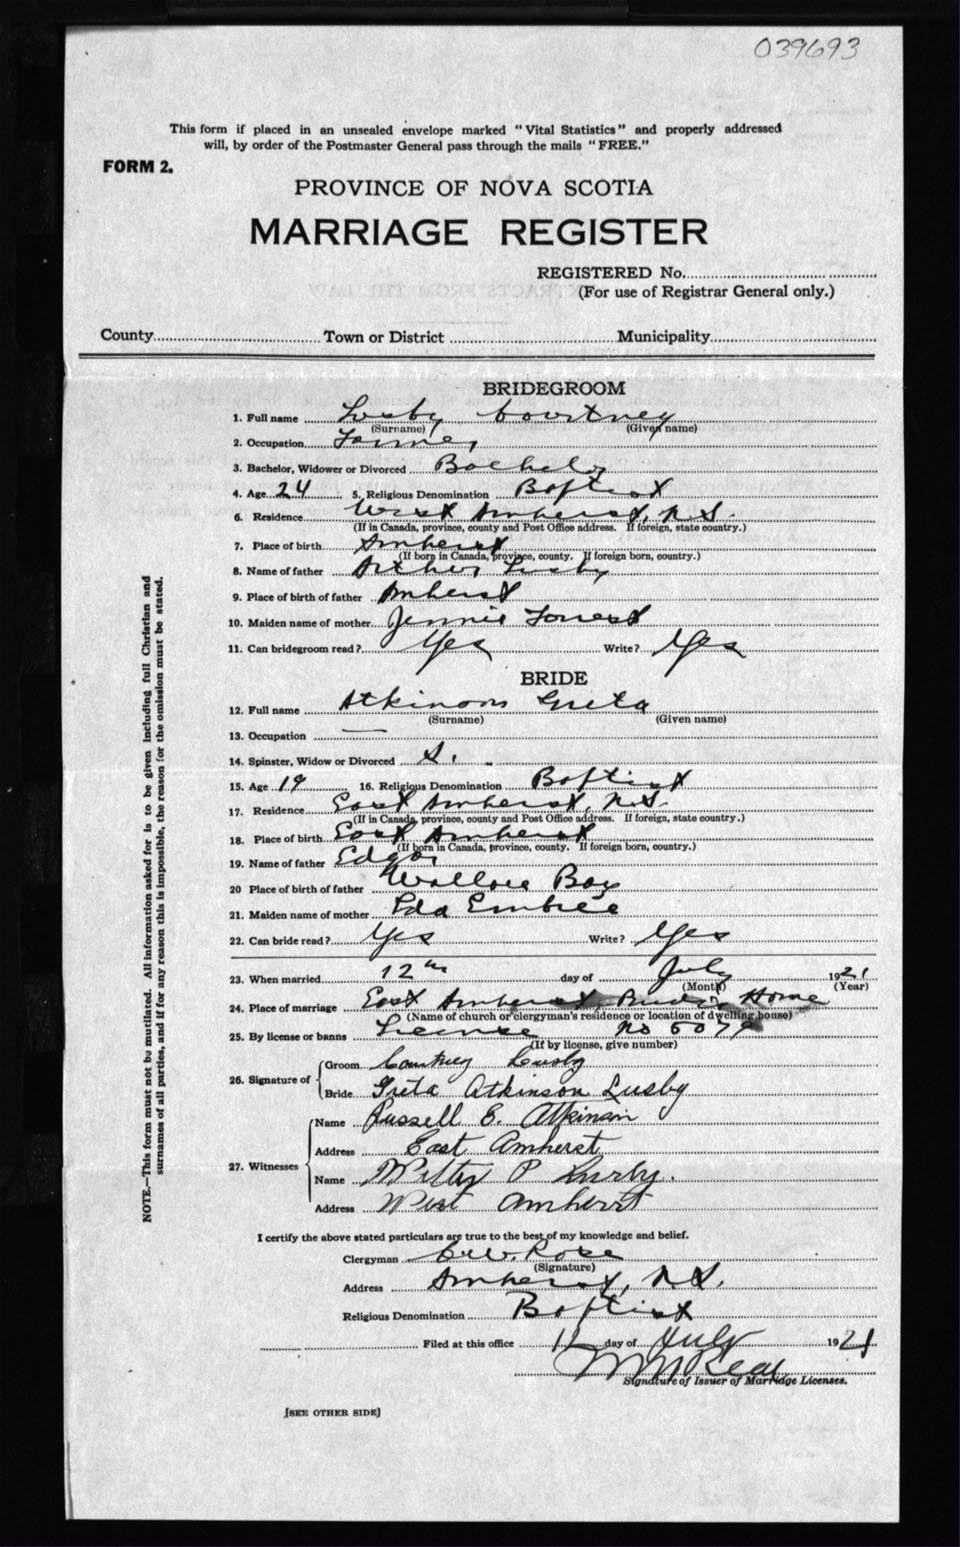 039693
This form if placed in an unsealed envelope marked "Vital Statistics" and properly addressed
will, by order of the Postmaster General pass through the mails "FREE."
FORM 2.
PROVINCE OF NOVA SCOTIA
MARRIAGE REGISTER
REGISTERED No.
(For use of Registrar General only.)
County Town or District Municipality
BRIDEGROOM
1. Full name Lusby Courtney
(Surname) (Given name)
2. Occupation Farmer
3. Bachelor, Widower or Divorced Bachelor
4. Age 24 5. Religious Denomination Baptist
6. Residence West Amherst, N.S.
(If in Canada, province, county and Post Office address. If foreign, state country.)
7. Place of birth Amherst
(If born in Canada, province, county. If foreign born, country.)
8. Name of father Arthur Lusby
9. Place of birth of father Amherst
10. Maiden name of mother Jennie Forrest
11. Can bridegroom read? Yes Write? Yes
BRIDE
12. Full name Atkinson Greta
(Surname) (Given name)
13. Occupation —
14. Spinster, Widow or Divorced S.
15. Age 19 16. Religious Denomination Baptist
17. Residence East Amherst, N.S.
(If in Canada, province, county and Post Office address. If foreign, state country.)
18. Place of birth East Amherst
(If born in Canada, province, county. If foreign born, country.)
19. Name of father Edgar
20 Place of birth of father Wallace Bay
21. Maiden name of mother Eda Embree
22. Can bride read? Yes Write? Yes
23. When married 12th day of July 1921
(Month) (Year)
24. Place of marriage East Amherst Brides Home
(Name of church or clergyman's residence or location of dwelling house)
25. By license or banns License No 5079
(If by license, give number)
26. Signature of Groom Courtney Lusby
Bride Greta Atkinson Lusby
27. Witnesses Name Russell E. Atkinson
Address East Amherst
Name P Lusby.
Address West Amherst
I certify the above stated particulars are true to the best of my knowledge and belief.
Clergyman Rose
(Signature)
Address Amherst, N.S.
Religious Denomination Baptist
Filed at this office 12 day of July 1921
Signature of Issuer of Marriage Licenses.
[SEE OTHER SIDE]
NOTE.—This form must not be mutilated. All information asked for is to be given including full Christian and
surnames of all parties, and if for any reason this is impossible, the reason for the omission must be stated.